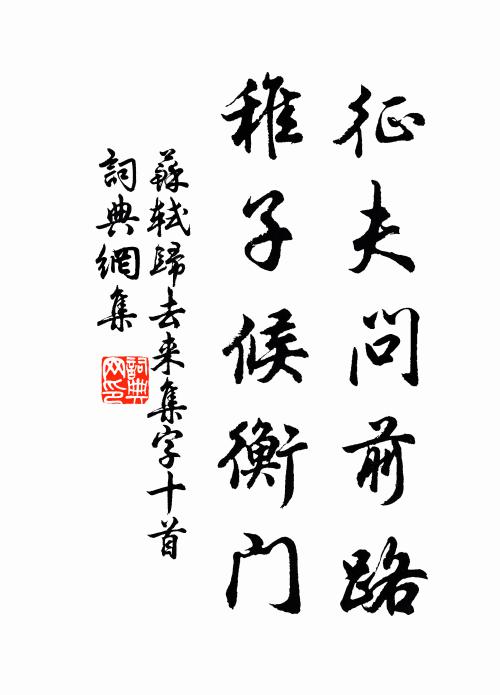 征夫問前路
稚子候衡门
蘇軾歸去来集字十首
詞典網集
詞典网印